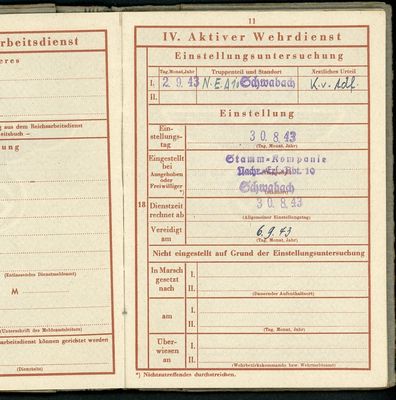 rbeitsdienst
eres
g aus dem Reichsarbeitsdienst
eitsbuch —
ung
(Entlassendes Dienstmeldeamt)
M
(Unterschrift des Meldeamtsleiters)
arbeitsdienst können gerichtet werden
(Dienstsitz)
11
IV. Aktiver Wehrdienst
Einstellungsuntersuchung
Tag, Monat, Jahr Truppenteil und Standort Ärztliches Urteil
I. 2. 9. 43 N.E.A. Schwabach K.v.
II.
Einstellung
Ein-
stellungs-
tag
30. 8. 43
(Tag, Monat, Jahr)
Eingestellt
bei
Ausgehoben
oder
Freiwilliger
*)
Stamm-Kompanie
Nachr.-Ers.-Abt. 10
Schwabach
18. Dienstzeit
rechnet ab
30. 8. 43
(Allgemeiner Einstellungstag)
Vereidigt
am
6. 9. 43
(Tag, Monat, Jahr)
Nicht eingestellt auf Grund der Einstellungsuntersuchung
In Marsch
gesetzt
nach
I.
II.
(Dauernder Aufenthaltsort)
am
I.
II.
(Tag, Monat, Jahr)
Über-
wiesen
an
I.
II.
(Wehrbezirkskommando bzw. Wehrmeldeamt)
*) Nichtzutreffendes durchstreichen.